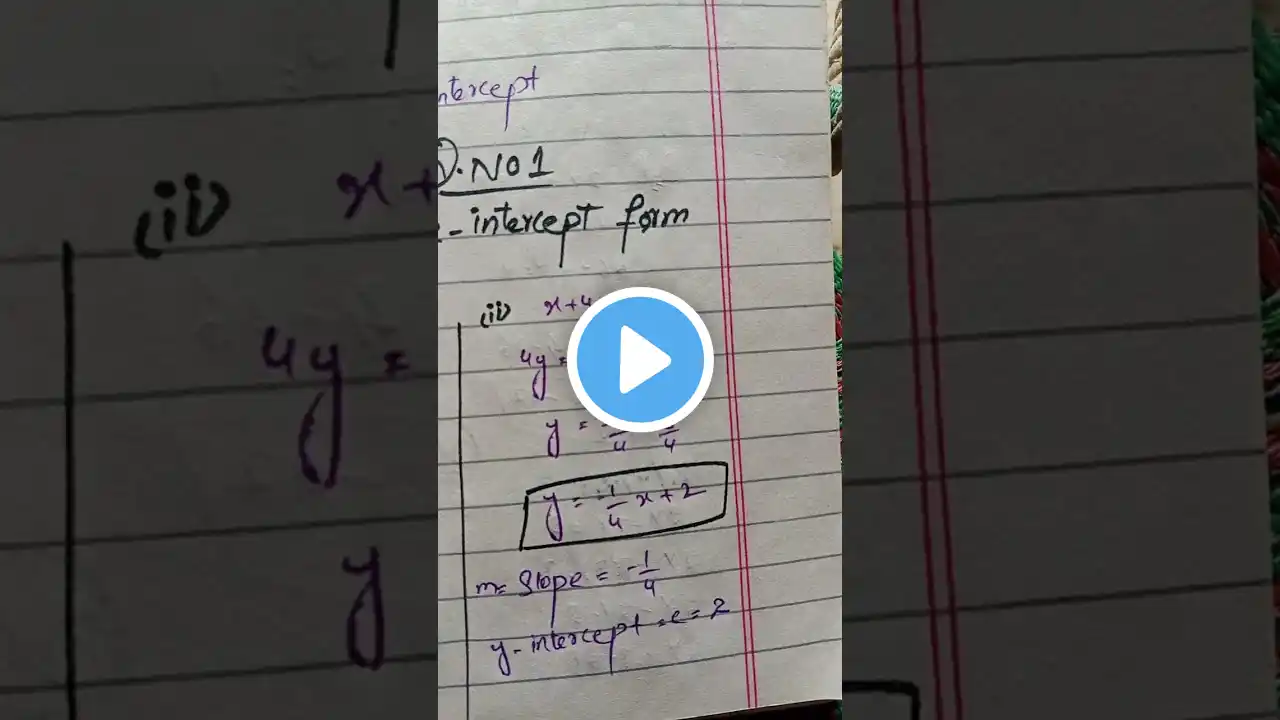 ntercept
Q.NO1
-intercept form
(ii) x+4
4y=
y =
4 4
y = -1/4 x+2
m= Slope = -1/4
y-intercept =c= 2
(ii) x+
4y =
y